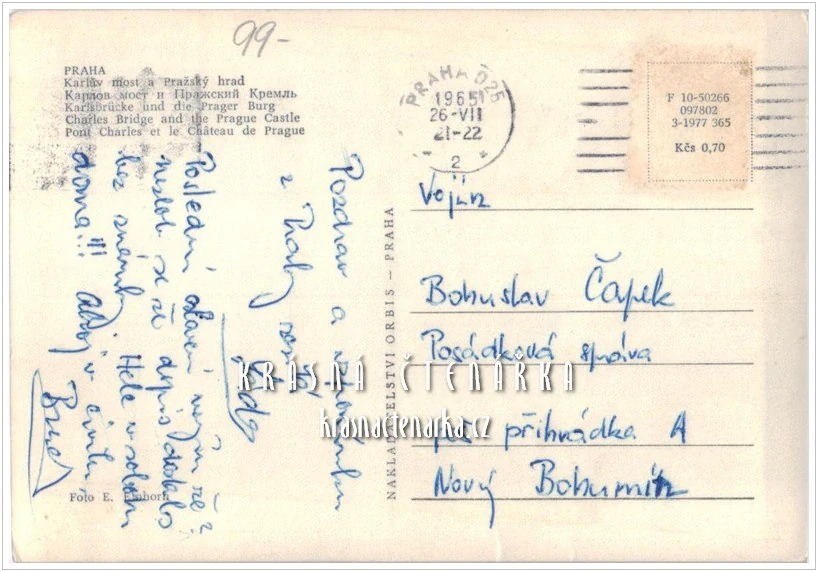 99-
PRAHA
Karlův most a Pražský hrad
Карлов мост и Пражский Кремль
Karlsbrücke und die Prager Burg
Charles Bridge and the Prague Castle
Pont Charles et le Château de Prague
PRAHA 025
1965
26-VII
21-22
2
F 10-50266
097802
3-1977 365
Kčs 0,70
Pozdrav a
z Prahy
Poslední
se ze dopis
bez známky Hele v sobotu
doma!!! Ahoj v civilu,
Foto E. Einhorn
NAKLADATELSTVÍ ORBIS – PRAHA
Vojín
Bohuslav Čapek
Posádková správa
přihrádka A
Nový Bohumín
KRÁSNÁ ČTENÁŘKA
krasnactenarka.cz